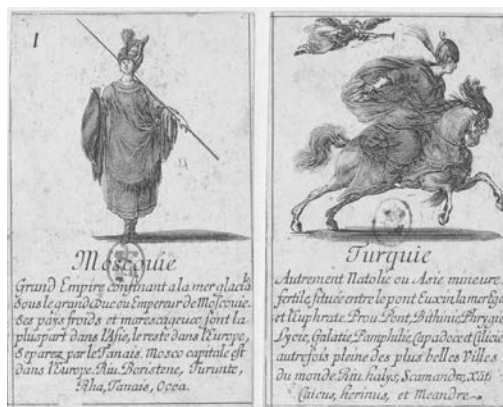 1
Moscouie
Grand Empire confinant a la mer glaciale
Sous le grand Duc ou Empereur de Moscouie.
Ses pays froids et marescageux sont la
pluspart dans l'Asie, le reste dans l'Europe,
Separez par le Tanais. Mosco capitale est
dans l'Europe. Riu. Boristene, Turunte,
Rha, Tanais, Occa.
Turquie
Autrement Natolie ou Asie mineure
fertile, située entre le pont Euxin, la mer
et l'Euphrate. Prou. Pont, Bithinie, Phrygie
Lycie, Galatie, Pamphilie, Capadoce et Cilicie
autrefois pleine des plus belles Villes
du monde. Riu. halys, Scamandre,
Caicus, herinus, et Meandre.